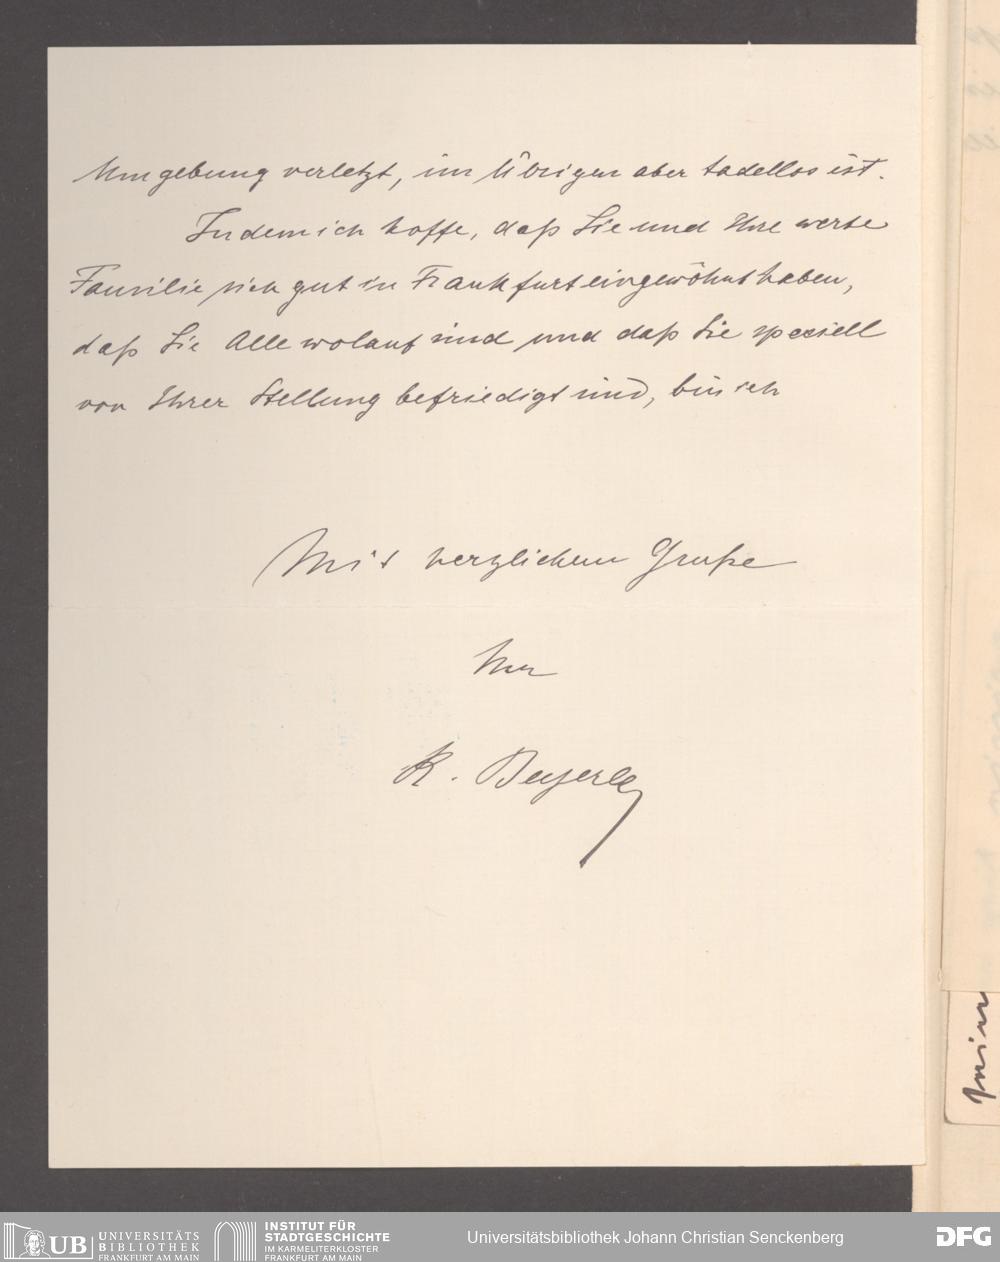 Umgebung verletzt, im Übrigen aber tadellos ist.
Indem ich hoffe, daß Sie und Ihre werte
Familie sich gut in Frankfurt eingewöhnt haben,
daß Sie Alle wolauf sind und daß Sie speziell
von Ihrer Stellung befriedigt sind, bin ich
Mit herzlichem Gruße
Ihr
K. Beyerle
UB UNIVERSITÄTS
BIBLIOTHEK
FRANKFURT AM MAIN
INSTITUT FÜR
STADTGESCHICHTE
IM KARMELITERKLOSTER
FRANKFURT AM MAIN
Universitätsbibliothek Johann Christian Senckenberg
DFG